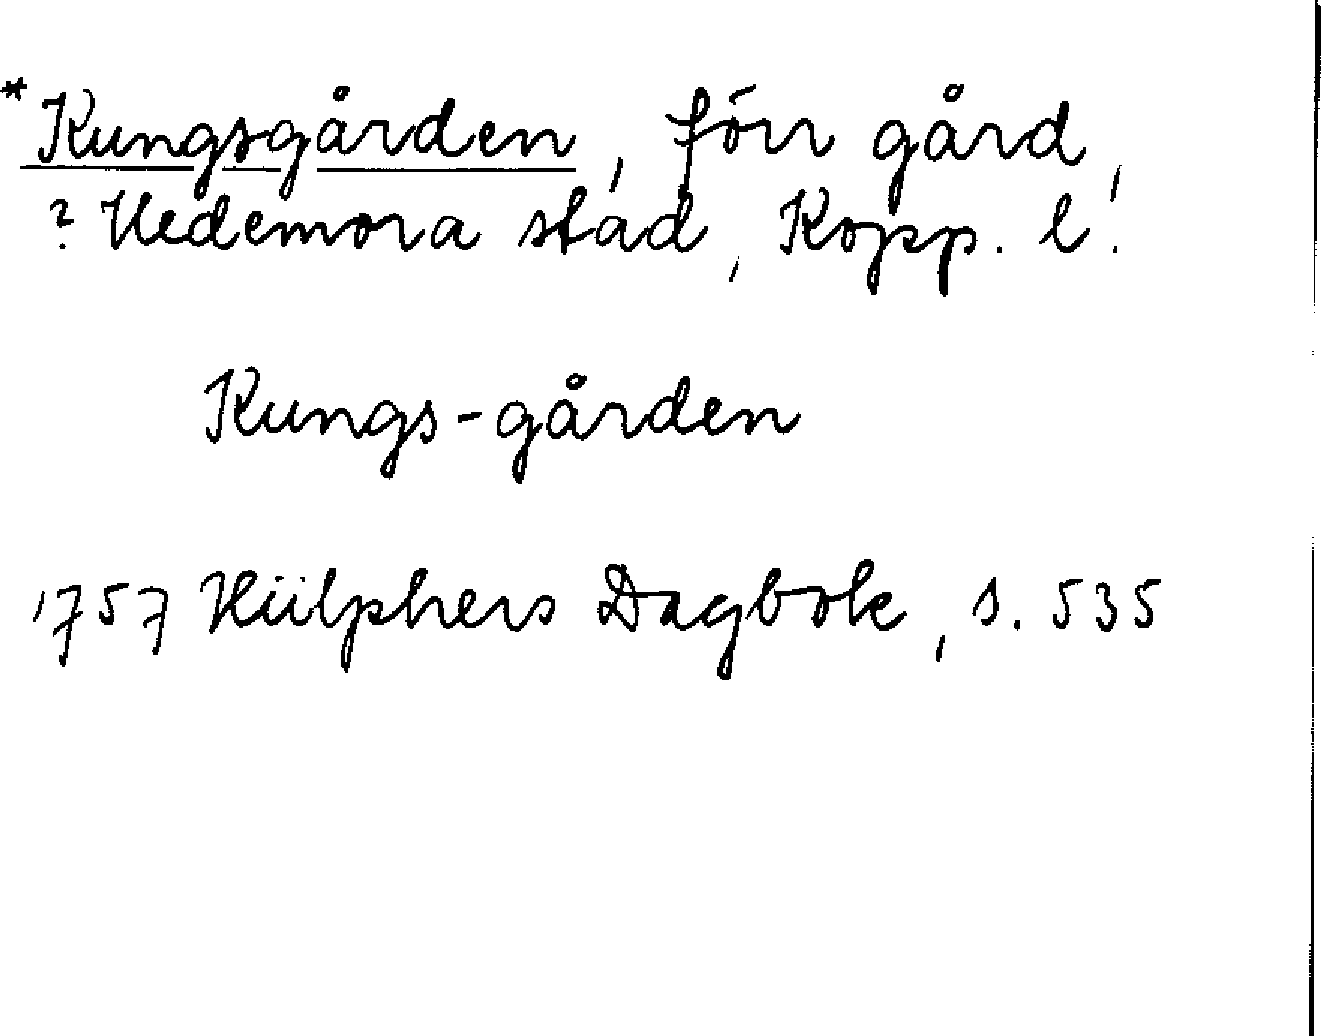 *Kungsgården, förr gård,
? Hedemora stad, Kopp. l.
Kungs-gården
1757 Hülphers Dagbok, s. 535